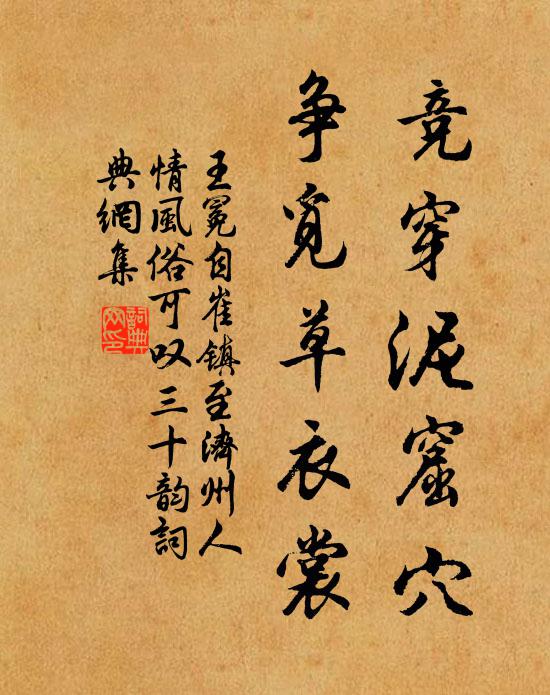 竞穿泥窟穴
争觅草衣裳
王冕自崔镇至濟州人
情風俗可叹三十韵詞
典網集
詞典
网印